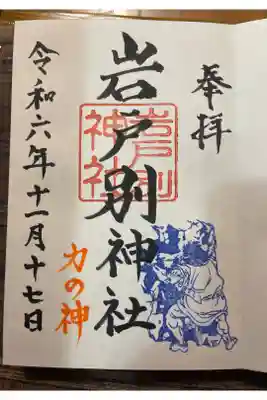 奉拝
岩戸別神社
岩戸別
神社
力の神
令和六年十一月十七日